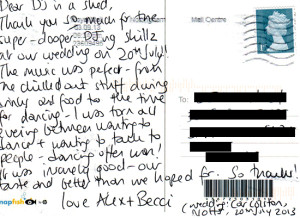 Dear DJ in a shed,
Thank you so much for the
super-dooper DJing skillz
at our wedding on 20th July!!
The music was perfect - from
the chilled out stuff during
drinks and food to the time
for dancing - I was torn all
evening between wanting to
dance + wanting to talk to
people - dancing often won!
It was insanely good - our
taste and better than we hoped for. So thanks!
love Alex + Becci
(wedding: Car Colston,
Notts, 20th July 2013)
Mail Centre
To:
1st
snapfish